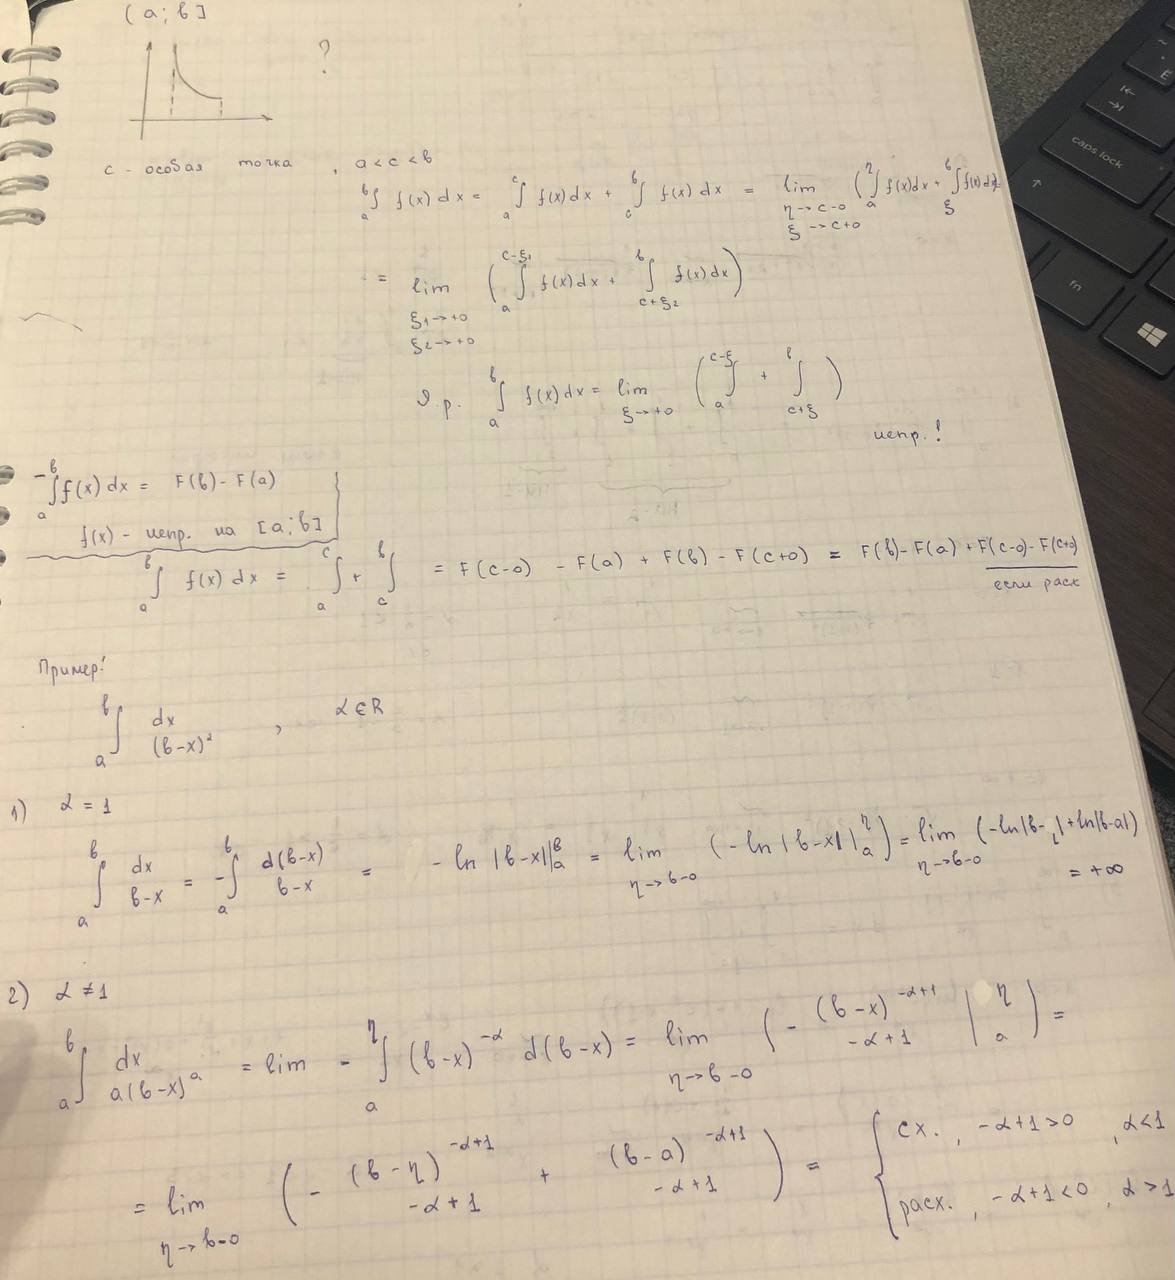 (a; b]
?
c - особая точка , a < c < b
∫_a^b f(x) dx = ∫_a^c f(x) dx + ∫_c^b f(x) dx = lim_{η→c-0, ξ→c+0} (∫_a^η f(x)dx + ∫_ξ^b f(x)dx)
= lim_{ξ₁→+0, ξ₂→+0} (∫_a^{c-ξ₁} f(x)dx + ∫_{c+ξ₂}^b f(x)dx)
ϑ.p. ∫_a^b f(x)dx = lim_{ξ→+0} (∫_a^{c-ξ} + ∫_{c+ξ}^b)
непр.!
- ∫_a^b f(x) dx = F(b) - F(a)
f(x) - непр. на [a; b]
∫_a^b f(x) dx = ∫_a^c + ∫_c^b = F(c-0) - F(a) + F(b) - F(c+0) = F(b) - F(a) + F(c-0) - F(c+0)
если расх
Пример!
∫_a^b dx (b-x)² , α ∈ R
1) α = 1
∫_a^b dx b-x = -∫_a^b d(b-x) b-x = - ln |b-x||_a^b = lim_{η→b-0} (-ln|b-x||_a^η) = lim_{η→b-0} (-ln|b-η|+ln|b-a|)
= +∞
2) α ≠ 1
∫_a^b dx a(b-x)^a = lim - ∫_a^η (b-x)^{-α} d(b-x) = lim_{η→b-0} (- (b-x)^{-α+1} -α+1 |_a^η) =
= lim_{η→b-0} (- (b-η)^{-α+1} -α+1 + (b-a)^{-α+1} -α+1) = { сх. , -α+1>0 , α<1
расх. , -α+1<0 , α>1